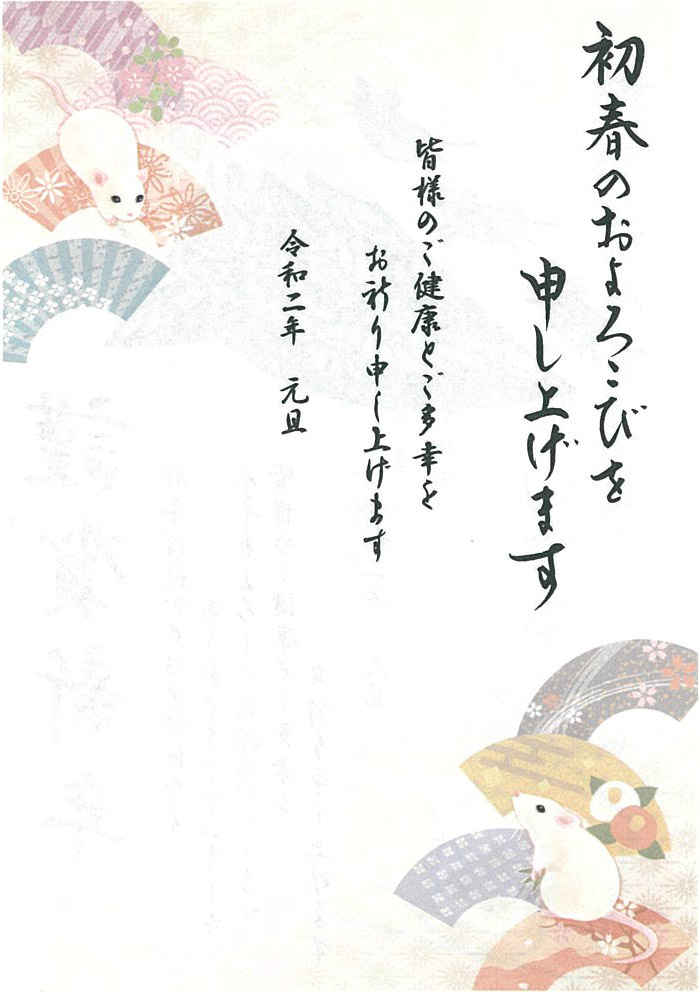 初春のおよろこびを
申し上げます
皆様のご健康とご多幸を
お祈り申し上げます
令和二年 元旦